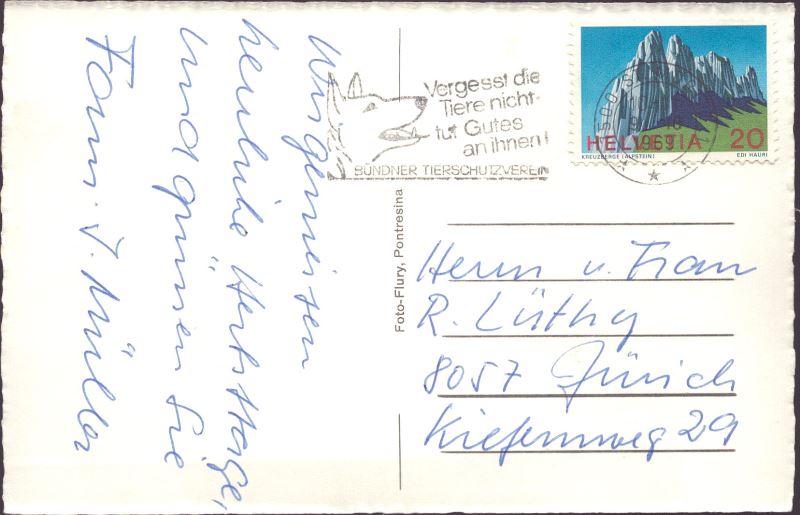 Wir geniessen
herrliche Herbsttage,
und grüssen Sie
Fam. J. Müller
Vergesst die
Tiere nicht-
tut Gutes
an ihnen!
BÜNDNER TIERSCHUTZVEREIN
1969
HELVETIA 20
KREUZBERGE (ALPSTEIN) EDI HAURI
Foto-Flury, Pontresina
Herrn u. Frau
R. Lüthy
8057 Zürich
Kiefernweg 29